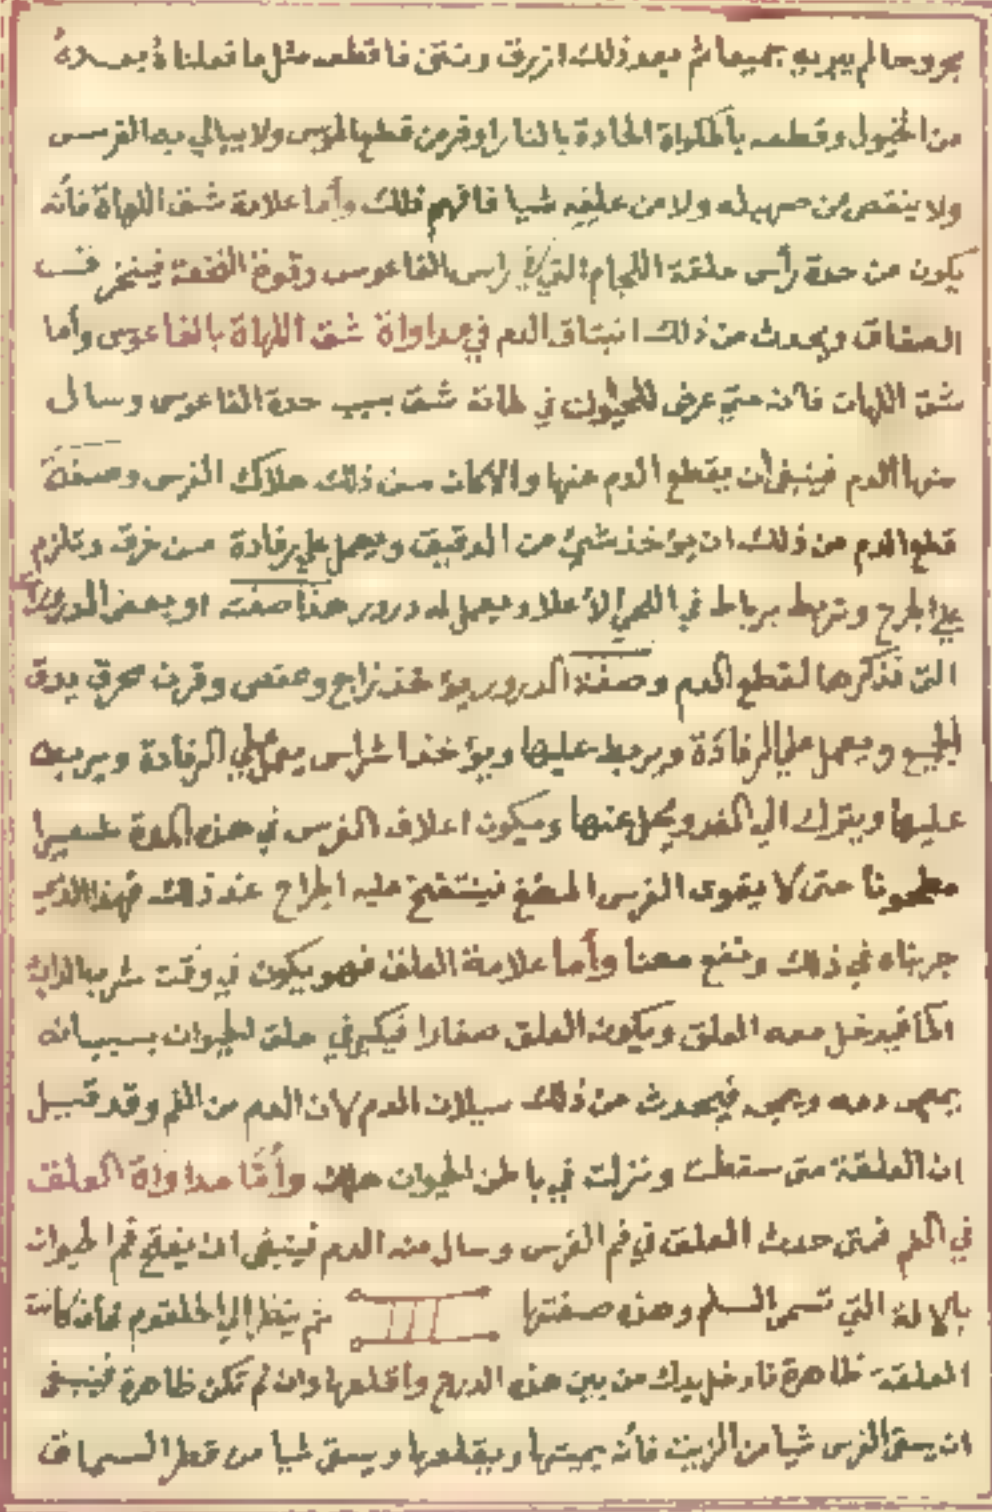 بجروحا لم يبريه جميعا ثم بعد ذلك ازرق ونتن فاقطعه مثل ما فعلناه بعده
من الخيول وقطعه بالمكواة الحادة بالنار اوفر من قطعها بالموس ولا يبالي به الفرس
ولا ينقص من صهيله ولا من علفه شيا فافهم ذلك وأما علامة شق اللهاة فأنه
يكون من حدة رأس حلقة اللجام التي في راس الفاعوس وقوة
الصفاق ويحدث من ذلك انبثاق الدم في مداواة شق اللهاة بالفاعوس وأما
شق اللهات فانه متي عرض للحيوان في لهاته شق بسبب حدة الفاعوس وسال
منها الدم فينبغي أن يقطع الدم عنها والا كان من ذلك هلاك الفرس وصفة
قطع الدم من ذلك ان يؤخذ شيئ من الدقيق ويعمل علي رفادة من خرق وتلزم
علي الجرح وتربط برباط في اللحي الأعلا ويعمل له درور هذا صفته او بعض الدرورات
التي نذكرها لقطع الدم وصفة الدرور يؤخذ زاج وعفص وقرن محرق يدق
الجميع ويعمل علي الرفادة ويربط عليها ويؤخذ اشراس يعمل علي الرفادة ويربط
عليها ويترك الي الغد ويحل عنها ويكون اعلاف الفرس في هذه المدة شعيرا
مطحونا حتى لا يقوى الفرس المضغ فينتفخ عليه الجراح عند ذلك فهذا الذي
جربناه في ذلك ونفع معنا وأما علامة العلق فهو يكون في وقت شرب الدابة
الما فيدخل معه العلق ويكون العلق صغارا فيكبر في حلق الحيوان بسبب انه
يمص دمه ويجي فيحدث من ذلك سيلان الدم لان الدم من الفم وقد قيل
ان العلقة متى سقطت ونزلت في باطن الحيوان هلك وأمّا مداواة العلق
في الفم فمتى حدث العلق في فم الفرس وسال منه الدم فينبغي ان يفتح فم الحيوان
بالالة التي تسمى السلم وهذه صفتها ثم ينظر إلي الحلقوم فأن كانت
العلقة ظاهرة فادخل يدك من بين هذه الدرج واقلعها وان لم تكن ظاهرة فينبغي
ان يسقى الفرس شيا من الزيت فأنه يميتها ويقلعها ويسقى شيا من قطر السماق